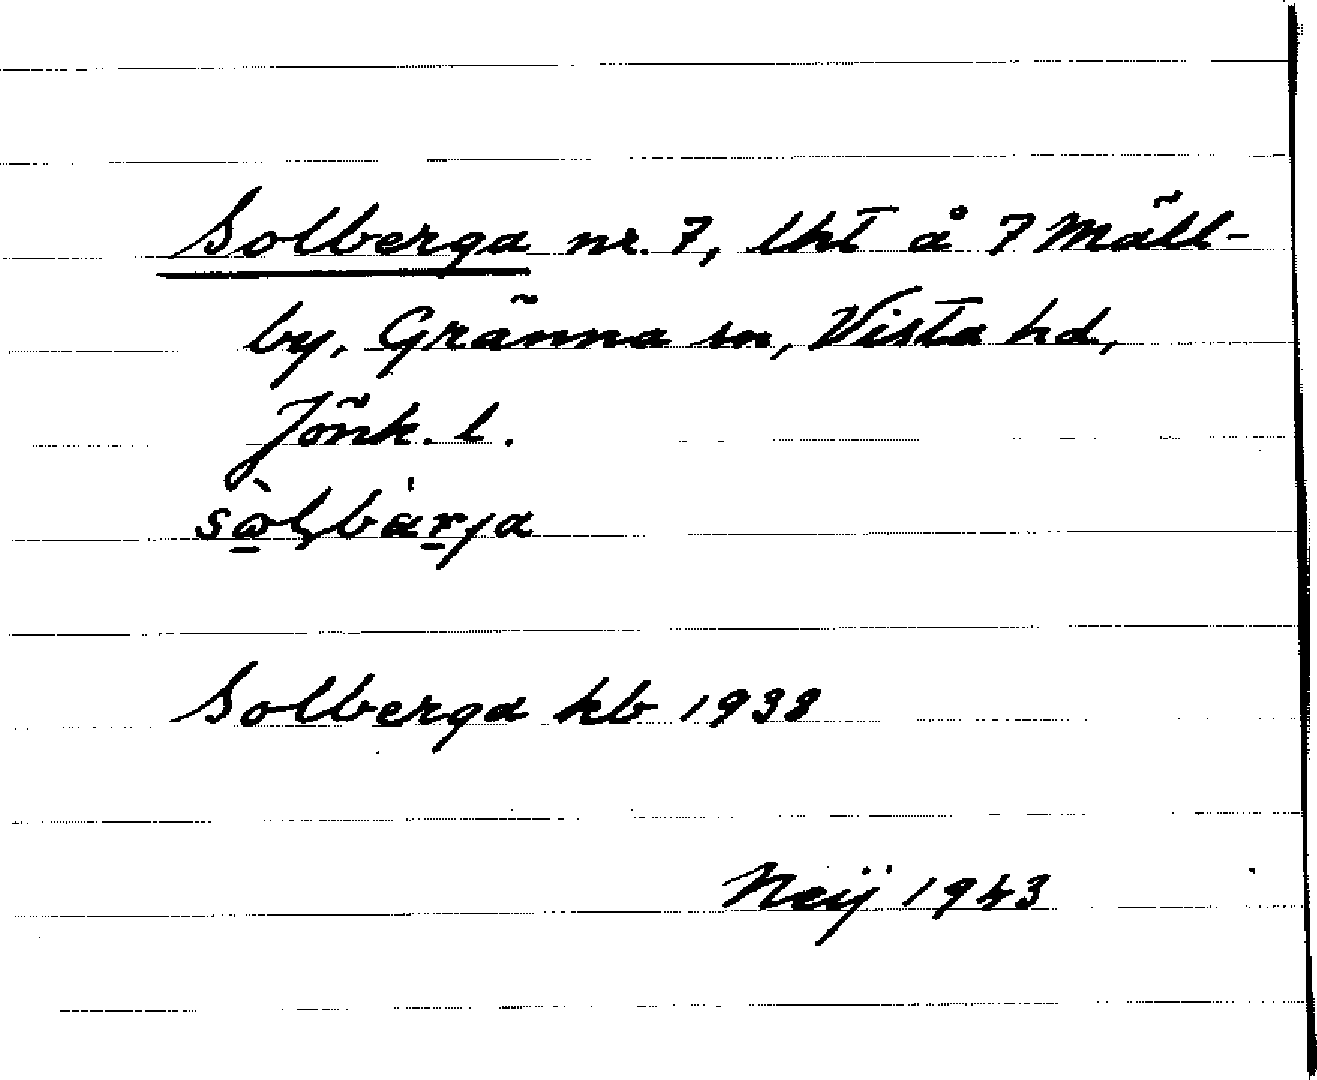 Solberga nr. 7, lht å 7 Mäll-
by, Gränna sn, Vista hd,
Jönk. l.
Solberga kb 1938
Neij 1943